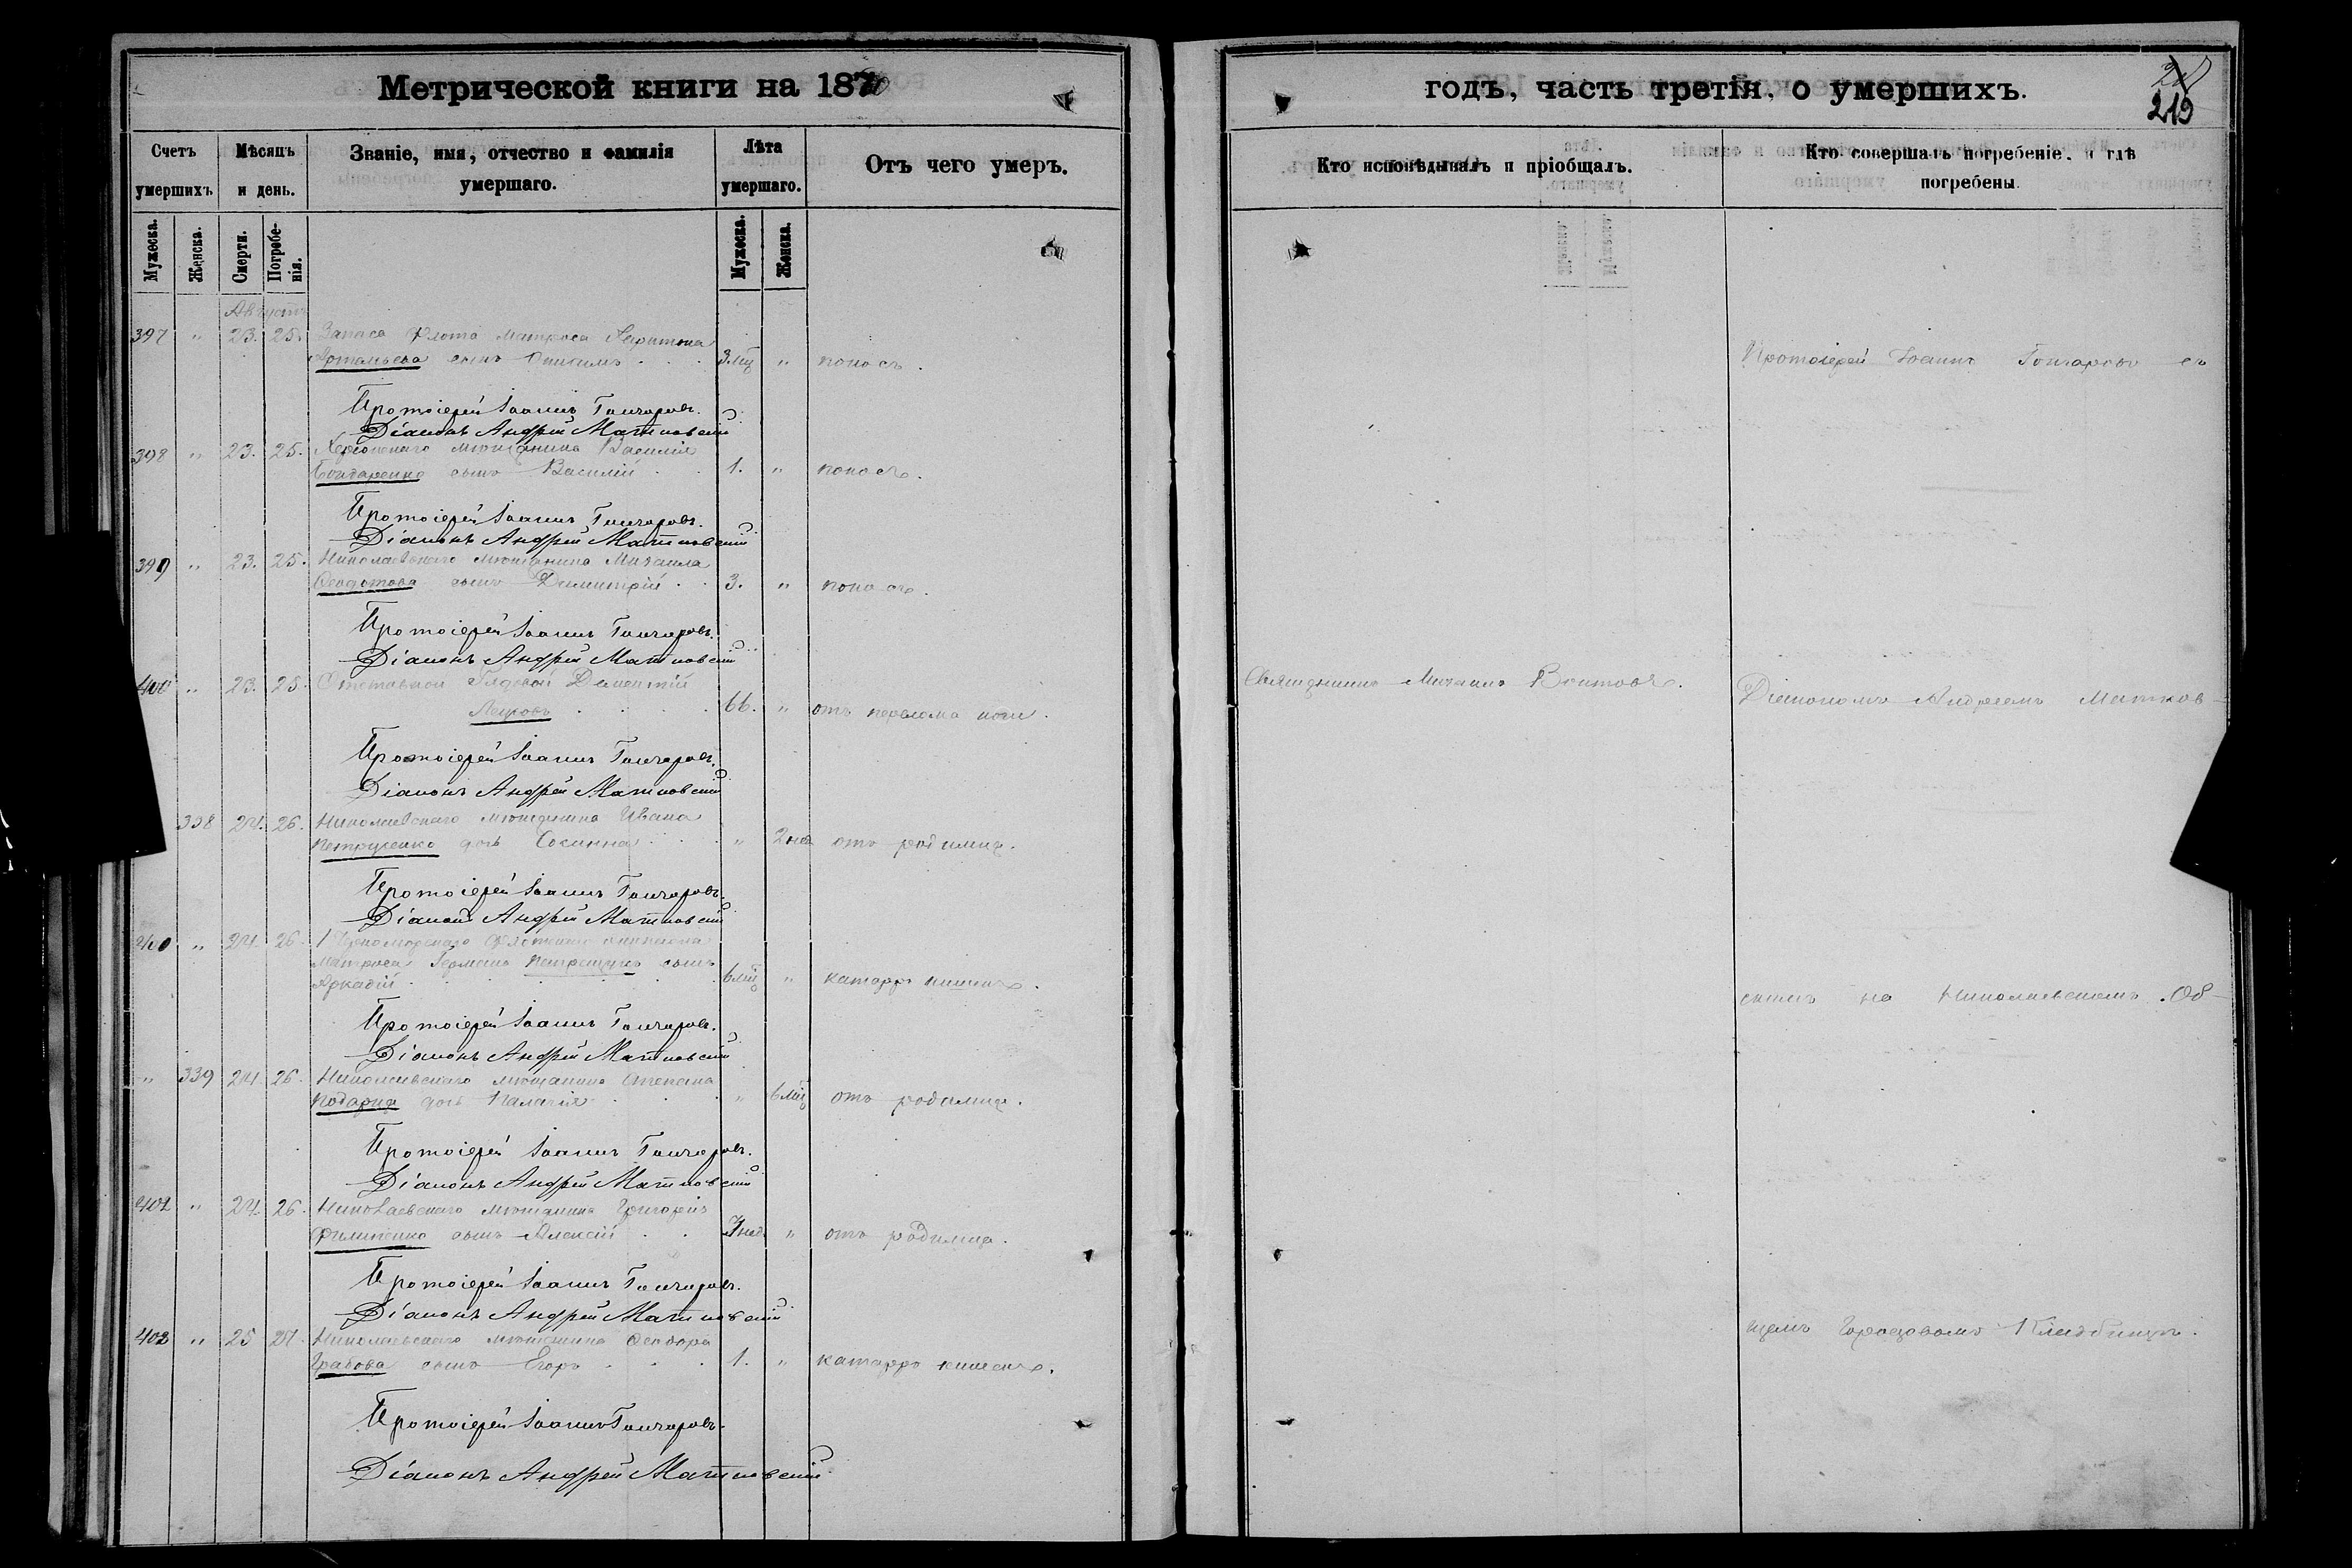 Метрической книги на 1870
годъ, часть третія, о умершихъ.
219
Счетъ умершихъ
Мѣсяцъ и день.
Званіе, имя, отчество и фамилія умершаго.
Лѣта умершаго.
Отъ чего умеръ.
Кто исповѣдывалъ и пріобщалъ.
Кто совершалъ погребеніе, и гдѣ погребены
Мужеска.
Женска.
Смерти.
Погребенія.
Мужеска.
Женска.
Августъ
397 " 23. 25. Запаса флота матроса
сынъ 3 мц " поносъ.
Протоіерей Іоаннъ Гончаровъ съ
Протоіерей Іоаннъ Гончаровъ.
Діаконъ Андрей Матковскій
398 " 23. 25. Херсонскаго мѣщанина Василія
Бондаренко сынъ Василій 1. " поносъ.
Протоіерей Іоаннъ Гончаровъ.
Діаконъ Андрей Матковскій
399 " 23. 25. Николаевскаго мѣщанина Михаила
Ѳеодотова сынъ Димитрій 3. " поносъ.
Протоіерей Іоаннъ Гончаровъ.
Діаконъ Андрей Матковскій
400 " 23. 25. Отставной Рядовой Дементій
66. " отъ перелома ноги.
Священникъ Михаилъ
Діакономъ Андреемъ Матков-
Протоіерей Іоаннъ Гончаровъ.
Діаконъ Андрей Матковскій
338 24. 26. Николаевскаго мѣщанина Ивана
Петренко дочь " 2 нед отъ родимца.
Протоіерей Іоаннъ Гончаровъ.
Діаконъ Андрей Матковскій
400 " 24. 26. 1 Черноморскаго флотскаго экипажа
матроса сынъ
Аркадій 6 мц " катарръ кишекъ.
скимъ на Николаевскомъ Об-
Протоіерей Іоаннъ Гончаровъ.
Діаконъ Андрей Матковскій
" 339 24. 26. Николаевскаго мѣщанина Степана
дочь Пелагія " 6 мц отъ родимца.
Протоіерей Іоаннъ Гончаровъ.
Діаконъ Андрей Матковскій
401 " 24. 26. Николаевскаго мѣщанина Григорія
Филипенко сынъ Алексій нед. " отъ родимца.
Протоіерей Іоаннъ Гончаровъ.
Діаконъ Андрей Матковскій
402 " 25 27. Николаевскаго мѣщанина Ѳеодора
Грабова сынъ Егоръ 1. " катарръ кишекъ.
щемъ Городовомъ Кладбищѣ.
Протоіерей Іоаннъ Гончаровъ.
Діаконъ Андрей Матковскій